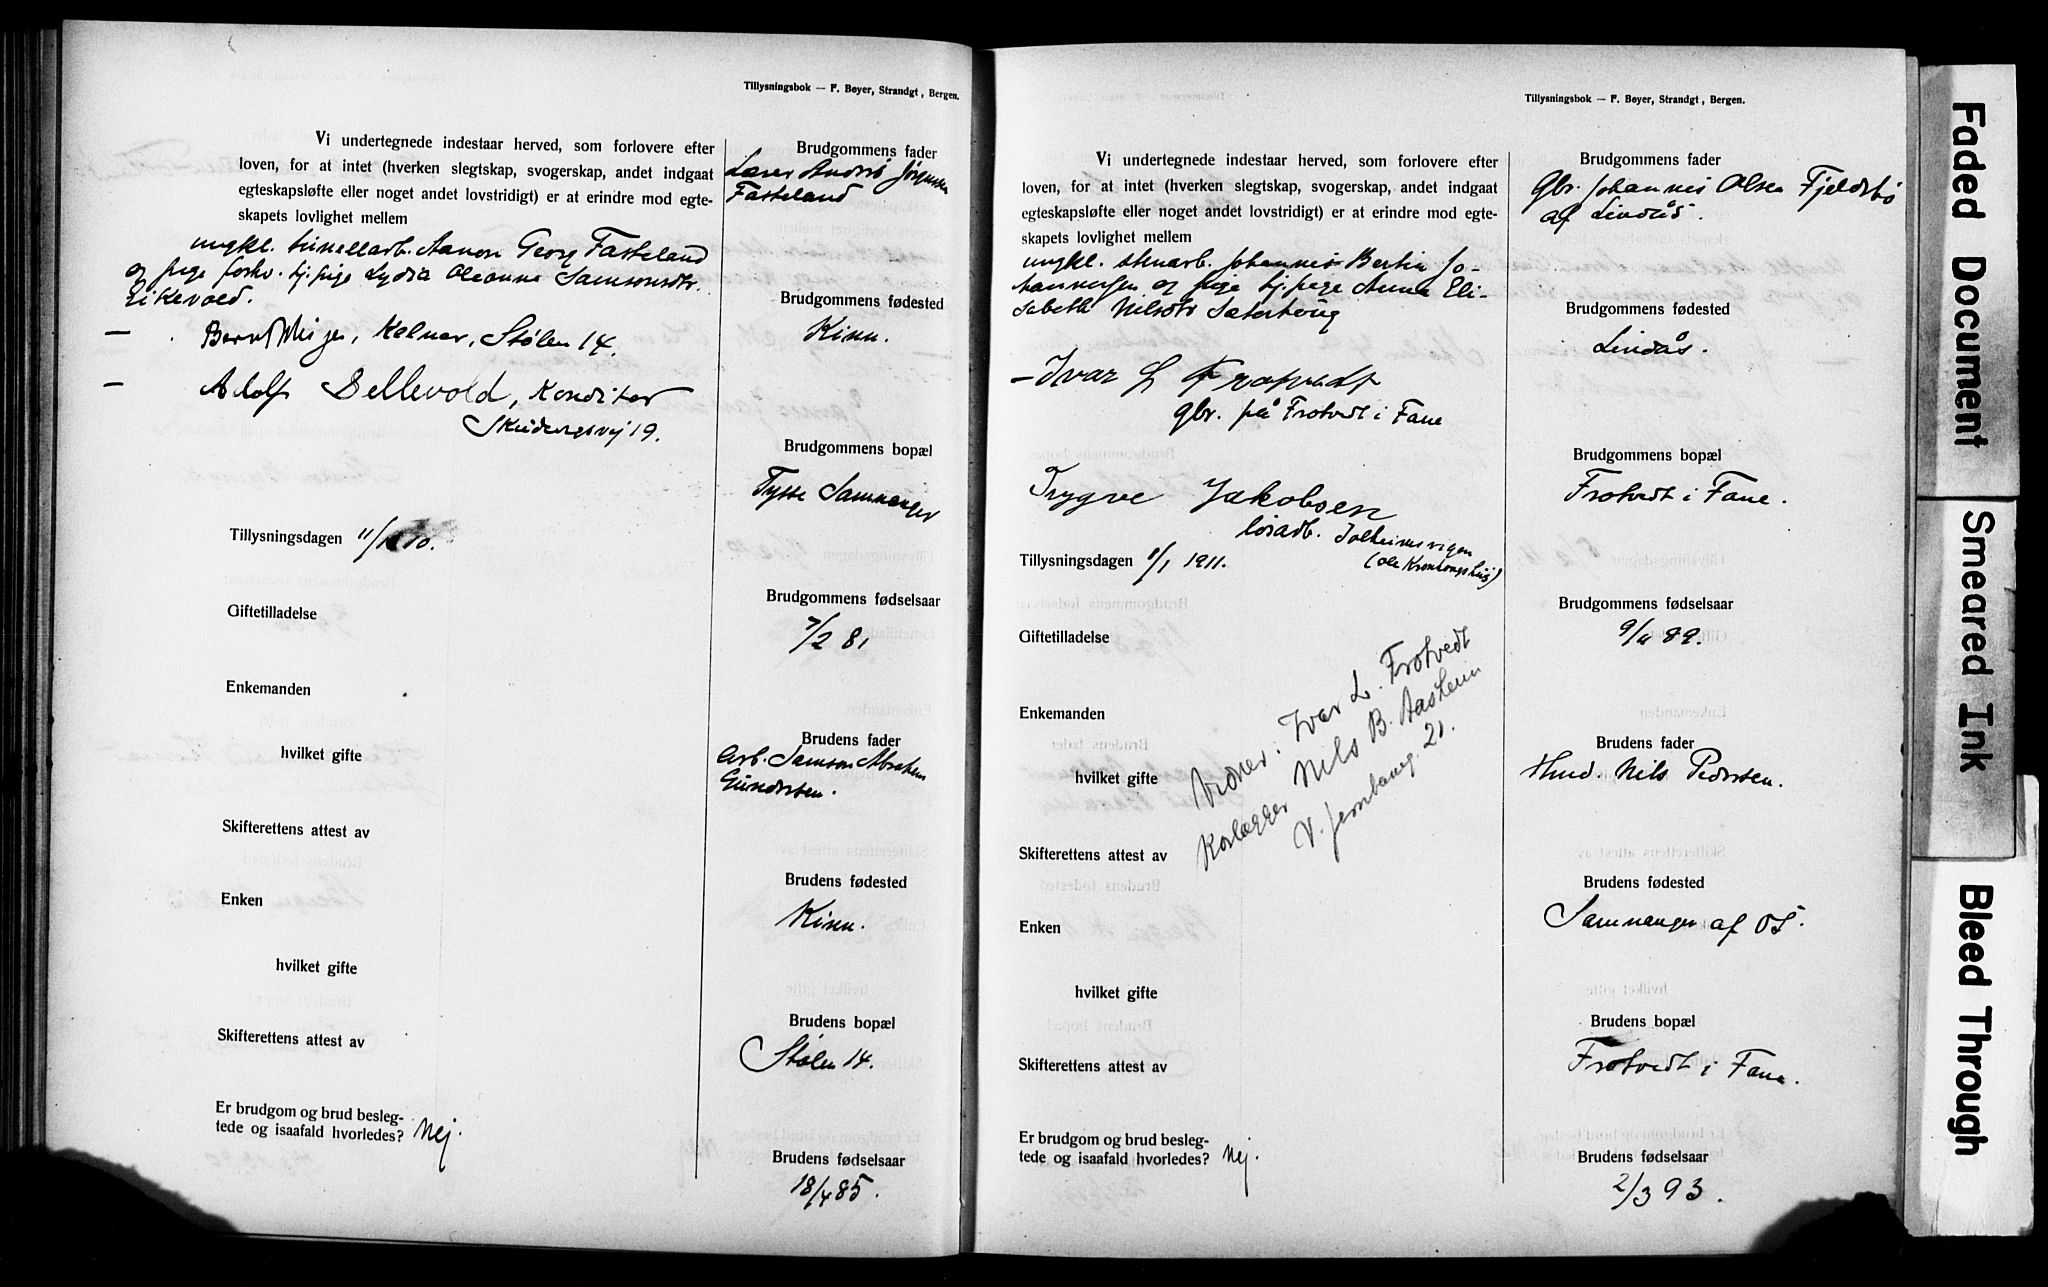 Tillysningsbok — F. Beyer, Strandgt, Bergen.
Vi undertegnede indestaar herved, som forlovere efter
loven, for at intet (hverken slegtskap, svogerskap, andet indgaat
egteskapsløfte eller noget andet lovstridigt) er at erindre mod egte-
skapets lovlighet mellem
ungkl. tunellarb. Georg Fasteland
og pige forhv. tj. pige Lydia Oleanne Samsonsdtr.
Eikevold.
— Kelner, Stølen 14.
— Adolf Sellevold, Konditor
19.
Tillysningsdagen 11/ 10.
Giftetilladelse
Enkemanden
hvilket gifte
Skifterettens attest av
Enken
hvilket gifte
Skifterettens attest av
Er brudgom og brud besleg-
tede og isaafald hvorledes? Nej.
Brudgommens fader
Lærer Jørgensen
Fasteland
Brudgommens fødested
Kinn.
Brudgommens bopæl
Tysse Samnanger
Brudgommens fødselsaar
7/2 81
Brudens fader
Arb. Samson Abraham
Gundersen.
Brudens fødested
Kinn.
Brudens bopæl
Stølen 14.
Brudens fødselsaar
18/4 85.
Tillysningsbok — F. Beyer, Strandgt, Bergen.
Vi undertegnede indestaar herved, som forlovere efter
loven, for at intet (hverken slegtskap, svogerskap, andet indgaat
egteskapsløfte eller noget andet lovstridigt) er at erindre mod egte-
skapets lovlighet mellem
ungkl. stenarb. Johannes Bertin Jo-
hannessen og pige tj. pige Anna Eli-
sabeth Nilsdtr
— Ivar L Frotvedt
gbr. på Frotvedt i Fane
Trygve Jakobsen
løsarb. Solheimsvigen
(Ole Kronborgs hus)
Tillysningsdagen 8/1 1911.
Giftetilladelse
Enkemanden
hvilket gifte
Vidner: Ivar L. Frotvedt
Nils B. Aasheim
V. Jernbaneg. 21.
Skifterettens attest av
Enken
hvilket gifte
Skifterettens attest av
Er brudgom og brud besleg-
tede og isaafald hvorledes? Nej.
Brudgommens fader
Gbr. Johannes Olsen Fjeldsbø
af Lindås.
Brudgommens fødested
Lindås.
Brudgommens bopæl
Frotvedt i Fane.
Brudgommens fødselsaar
9/11 89.
Brudens fader
Hmd. Nils Pedersen.
Brudens fødested
Samnanger af Os.
Brudens bopæl
Frotvedt i Fane.
Brudens fødselsaar
2/3 93.
Faded Document
Smeared Ink
Bleed Through